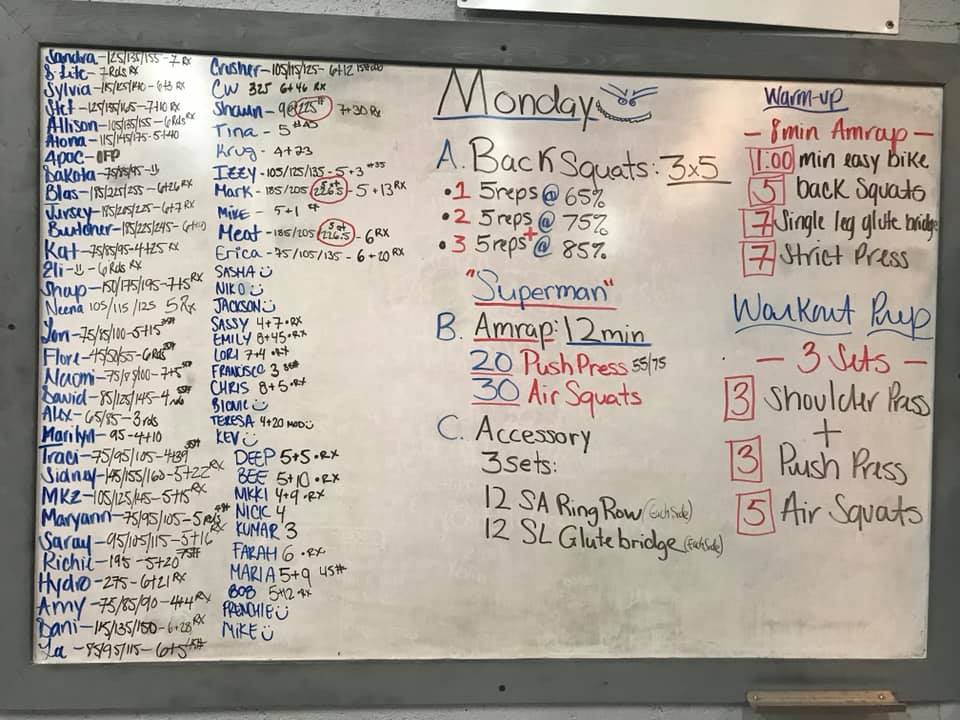 Sandra-125/135/155-7 RX
7 Rds RX
Sylvia-115/125/140-6+3 RX
125/135/165-7+10 RX
Allison-105/135/155-6 Rds RX
115/145/175-5+40
Apoc-OFP
Dakota-75/85/95-
Blas-185/225/255-6+26 RX
Jersey-185/205/225-6+7 RX
Butcher-185/225/245-
Kat-75/85/95-4+25 RX
Eli- - 6 Rds RX
Shap-150/175/195-7+5 RX
Neena 105/115/125 5 Rx
75/85/100-5+15
Flore-45/50/55-6 Rds
Naomi-75/85/100-7+5
David-85/125/145-4
Alex-65/85-3 rds
Marilyn-95-4+10
Traci-75/95/105-4+39 35#
Sidney-145/155/160-5+22 RX
MKZ-105/125/145-5+15 RX
Maryann-75/95/105-5 rds
Saray-95/105/115-5+16 RX
Richie-195-5+20 75#
Hydro-275-6+21 RX
Amy-75/85/90-4+4 RX
Dani-115/135/150-6+28 RX
85/95/115-6+5
Crusher-105/115/125-6+12
CW 325 6+46 RX
Shawn-9@225# 7+30 Rx
Tina-5
Krug-4+23
Izzy-105/125/135-5+3 #35
Mark-185/205 226.5-5+13 RX
Mike-5+1
Meat-185/205 226.5-6 RX
Erica-75/105/135-6+20 RX
SASHA
NIKO
JACKSON
SASSY 4+7 • RX
EMILY 8+45 • RX
LORI 7+4 • RX
FRANCISCO 3
CHRIS 8+5 • RX
BIONIC
TERESA 4+20 MOD
KEV
DEEP 5+5 • RX
BEE 5+10 • RX
NIKKI 4+9 • RX
NICK 4
KUMAR 3
FARAH 6 • RX
MARIA 5+9 45#
BOB 5+12 RX
FRENCHIE
MIKE
Monday
A. Back Squats: 3x5
• 1 5reps @ 65%
• 2 5reps @ 75%
• 3 5reps+ @ 85%
"Superman"
B. Amrap: 12min
20 Push Press 55/75
30 Air Squats
C. Accessory
3sets:
12 SA Ring Row (Each Side)
12 SL Glute bridge (Each Side)
Warm-up
- 8min Amrap -
1:00 min easy bike
5 back Squats
7 Single leg glute bridge
7 Strict Press
Workout Prep
- 3 Sets -
3 Shoulder Press
+
3 Push Press
5 Air Squats